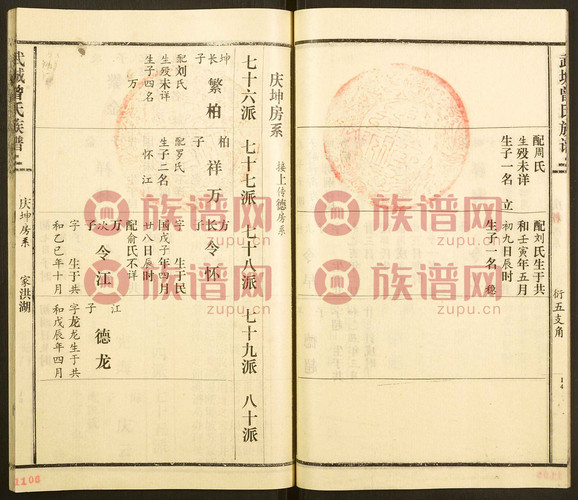 武城曾氏族谱
衍五支角
14
配周氏
生殁未详
生子一名 立
配刘氏生于共
和壬寅年五月
初九日辰时
生子一名 稳
庆坤房系
接上传德房系
七十六派 七十七派 七十八派 七十九派 八十派
坤长子 繁柏
配刘氏
生殁未详
生子四名
万
柏子 祥万
配罗氏
生子二名
怀 江
万长子 令怀
字 生于民
国戊子年四月
廿八日辰时
配俞氏不详
万次子 令江
字 生于共
和乙巳年十月
江子 德龙
字龙龙生于共
和戊辰年四月
武城曾氏族谱
庆坤房系
家洪湖
1106
族谱网
zupu.cn
族谱网
zupu.cn
族谱网
zupu.cn
族谱网
zupu.cn
族谱网
zupu.cn
族谱网
zupu.cn